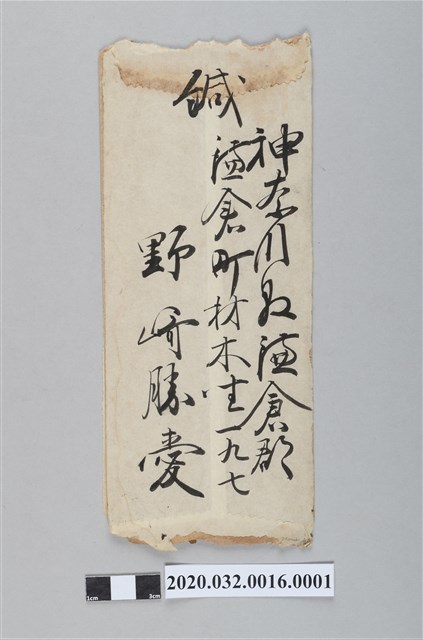 緘
神奈川縣鎌倉郡
鎌倉町材木座一九七
野崎勝愛
1cm
3cm
2020.032.0016.0001